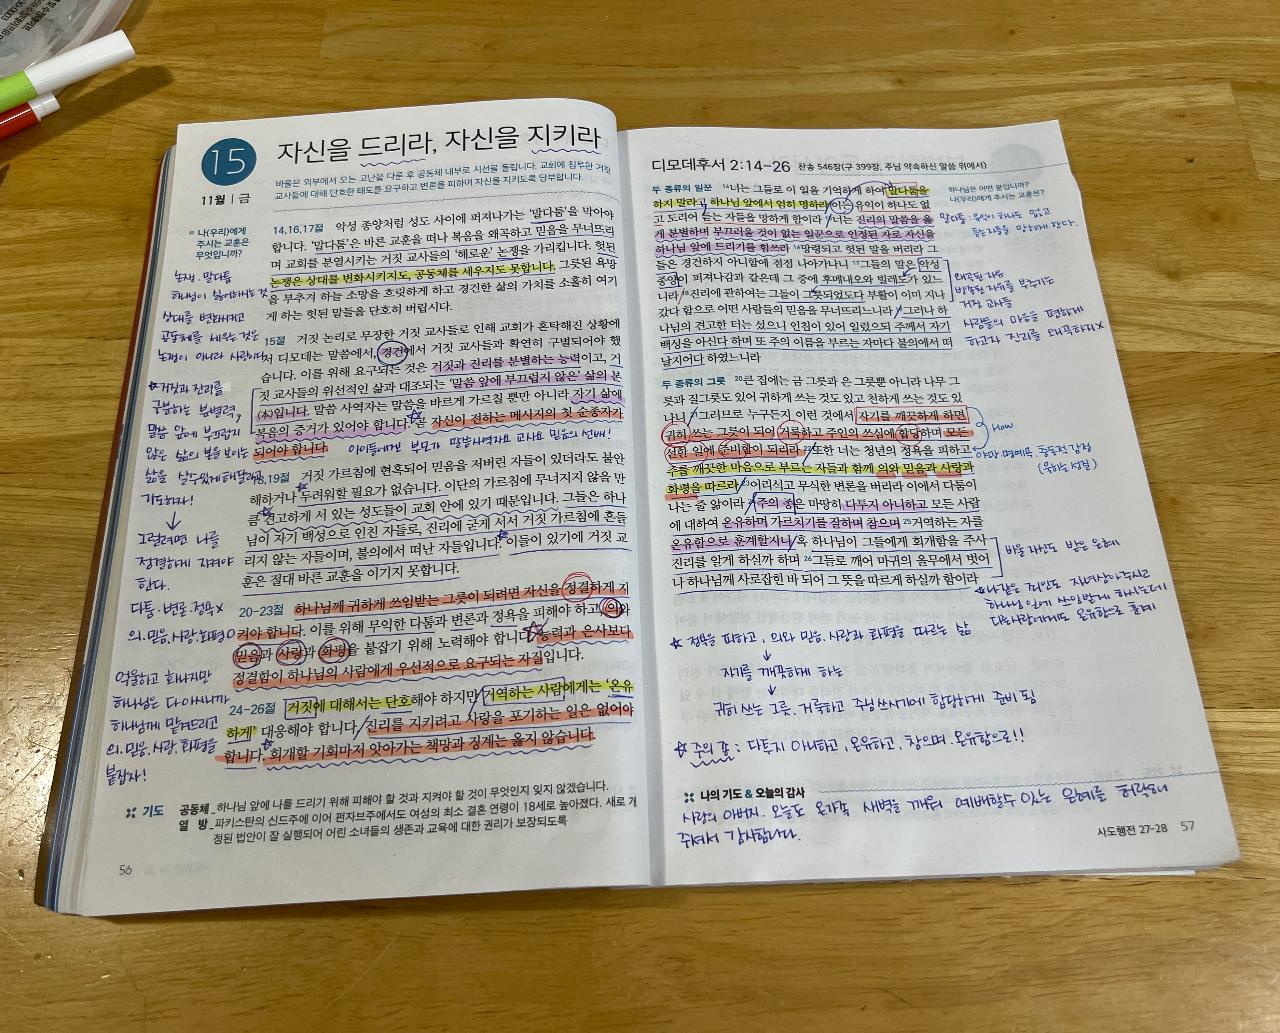 15
11월 | 금
자신을 드리라, 자신을 지키라
바울은 외부에서 오는 고난을 다룬 후 공동체 내부로 시선을 돌립니다. 교회에 침투한 거짓
교사들에 대해 단호한 태도를 요구하고 변론을 피하며 자신을 지키도록 당부합니다.
나(우리)에게
주시는 교훈은
무엇입니까?
논쟁. 말다툼
하나님이 싫어하는 것
상대를 변화시키고
공동체를 세우는 것은
논쟁이 아니라 사랑이다
거짓과 진리를
구분하는 분별력,
말씀 앞에 부끄럽지
않은 삶의 본을 보이는
삶을 살수있게 해달라고
기도하자!
그럴려면 나를
정결하게 지켜야
한다.
다툼·변론·정욕 X
의.믿음.사랑.화평 O
억울하고 화나지만
하나님은 다 아시니까
하나님께 맡겨드리고
의.믿음.사랑.화평을
붙잡자!
14,16,17절 악성 종양처럼 성도 사이에 퍼져나가는 '말다툼'을 막아야
합니다. '말다툼'은 바른 교훈을 떠나 복음을 왜곡하고 믿음을 무너뜨리
며 교회를 분열시키는 거짓 교사들의 '해로운' 논쟁을 가리킵니다. 헛된
논쟁은 상대를 변화시키지도, 공동체를 세우지도 못합니다. 그릇된 욕망
을 부추겨 하늘 소망을 흐릿하게 하고 경건한 삶의 가치를 소홀히 여기
게 하는 헛된 말들을 단호히 버립시다.
15절 거짓 논리로 무장한 거짓 교사들로 인해 교회가 혼탁해진 상황에
서 디모데는 말씀에서, 경건에서 거짓 교사들과 확연히 구별되어야 했
습니다. 이를 위해 요구되는 것은 거짓과 진리를 분별하는 능력이고, 거
짓 교사들의 위선적인 삶과 대조되는 '말씀 앞에 부끄럽지 않은' 삶의 본
(本)입니다. 말씀 사역자는 말씀을 바르게 가르칠 뿐만 아니라 자기 삶에
복음의 증거가 있어야 합니다. 곧 자신이 전하는 메시지의 첫 순종자가
되어야 합니다.
아이들에겐 부모가 말씀사역자요 교사요 믿음의 선배!
18,19절 거짓 가르침에 현혹되어 믿음을 저버린 자들이 있더라도 불안
해하거나 두려워할 필요가 없습니다. 이단의 가르침에 무너지지 않을 만
큼 견고하게 서 있는 성도들이 교회 안에 있기 때문입니다. 그들은 하나
님이 자기 백성으로 인친 자들로, 진리에 굳게 서서 거짓 가르침에 흔들
리지 않는 자들이며, 불의에서 떠난 자들입니다. 이들이 있기에 거짓 교
훈은 절대 바른 교훈을 이기지 못합니다.
20-23절 하나님께 귀하게 쓰임받는 그릇이 되려면 자신을 정결하게 지
켜야 합니다. 이를 위해 무익한 다툼과 변론과 정욕을 피해야 하고, 의와
믿음과 사랑과 화평을 붙잡기 위해 노력해야 합니다. 능력과 은사보다
정결함이 하나님의 사람에게 우선적으로 요구되는 자질입니다.
24-26절 거짓에 대해서는 단호해야 하지만 거역하는 사람에게는 '온유
하게' 대응해야 합니다. 진리를 지키려고 사랑을 포기하는 일은 없어야
합니다. 회개할 기회마저 앗아가는 책망과 징계는 옳지 않습니다.
기도 공동체_하나님 앞에 나를 드리기 위해 피해야 할 것과 지켜야 할 것이 무엇인지 잊지 않겠습니다.
열 방_파키스탄의 신드주에 이어 펀자브주에서도 여성의 최소 결혼 연령이 18세로 높아졌다. 새로 개
정된 법안이 잘 실행되어 어린 소녀들의 생존과 교육에 대한 권리가 보장되도록
56
디모데후서 2:14-26 찬송 546장(구 399장, 주님 약속하신 말씀 위에서)
두 종류의 일꾼 14너는 그들로 이 일을 기억하게 하여 말다툼을
하지 말라고 하나님 앞에서 엄히 명하라 이는 유익이 하나도 없
고 도리어 듣는 자들을 망하게 함이라 15너는 진리의 말씀을 옳
게 분별하며 부끄러울 것이 없는 일꾼으로 인정된 자로 자신을
하나님 앞에 드리기를 힘쓰라 16망령되고 헛된 말을 버리라 그
들은 경건하지 아니함에 점점 나아가나니 17그들의 말은 악성
종양이 퍼져나감과 같은데 그 중에 후메내오와 빌레도가 있느
니라 18진리에 관하여는 그들이 그릇되었도다 부활이 이미 지나
갔다 함으로 어떤 사람들의 믿음을 무너뜨리느니라 19그러나 하
나님의 견고한 터는 섰으니 인침이 있어 일렀으되 주께서 자기
백성을 아신다 하며 또 주의 이름을 부르는 자마다 불의에서 떠
날지어다 하였느니라
두 종류의 그릇 20큰 집에는 금 그릇과 은 그릇뿐 아니라 나무 그
릇과 질그릇도 있어 귀하게 쓰는 것도 있고 천하게 쓰는 것도 있
나니 21그러므로 누구든지 이런 것에서 자기를 깨끗하게 하면
귀히 쓰는 그릇이 되어 거룩하고 주인의 쓰심에 합당하며 모든
선한 일에 준비함이 되리라 22또한 너는 청년의 정욕을 피하고
주를 깨끗한 마음으로 부르는 자들과 함께 의와 믿음과 사랑과
화평을 따르라 23어리석고 무식한 변론을 버리라 이에서 다툼이
나는 줄 앎이라 24주의 종은 마땅히 다투지 아니하고 모든 사람
에 대하여 온유하며 가르치기를 잘하며 참으며 25거역하는 자를
온유함으로 훈계할지니 혹 하나님이 그들에게 회개함을 주사
진리를 알게 하실까 하며 26그들로 깨어 마귀의 올무에서 벗어
나 하나님께 사로잡힌 바 되어 그 뜻을 따르게 하실까 함이라
하나님은 어떤 분입니까?
나(우리)에게 주시는 교훈은?
말다툼: 유익이 하나도 없고
듣는자들을 망하게 한다.
왜곡된 자유
방종된 자유를 부추기는
거짓 교사들
사람들의 마음을 편하게
하고자 진리를 왜곡하지X
How
야망 명예욕, 충동적 감정
(욱하는 성질)
바울 자신도 받은 은혜
나같은 죄인도 자녀삼아주시고
하나님 일에 쓰임받게 하시는데
다른사람에게도 온유함으로 훈계
정욕을 피하고, 의와 믿음, 사랑과 화평을 따르는 삶
자기를 깨끗하게 하는
귀히 쓰는 그릇. 거룩하고 주님쓰시기에 합당하게 준비 됨
주의 종 : 다투지 아니하고, 온유하고, 참으며, 온유함으로!!
나의 기도 & 오늘의 감사
사랑의 아버지. 오늘도 온가족 새벽을 깨워 예배할수 있는 은혜를 허락해
주셔서 감사합니다.
사도행전 27-28 57